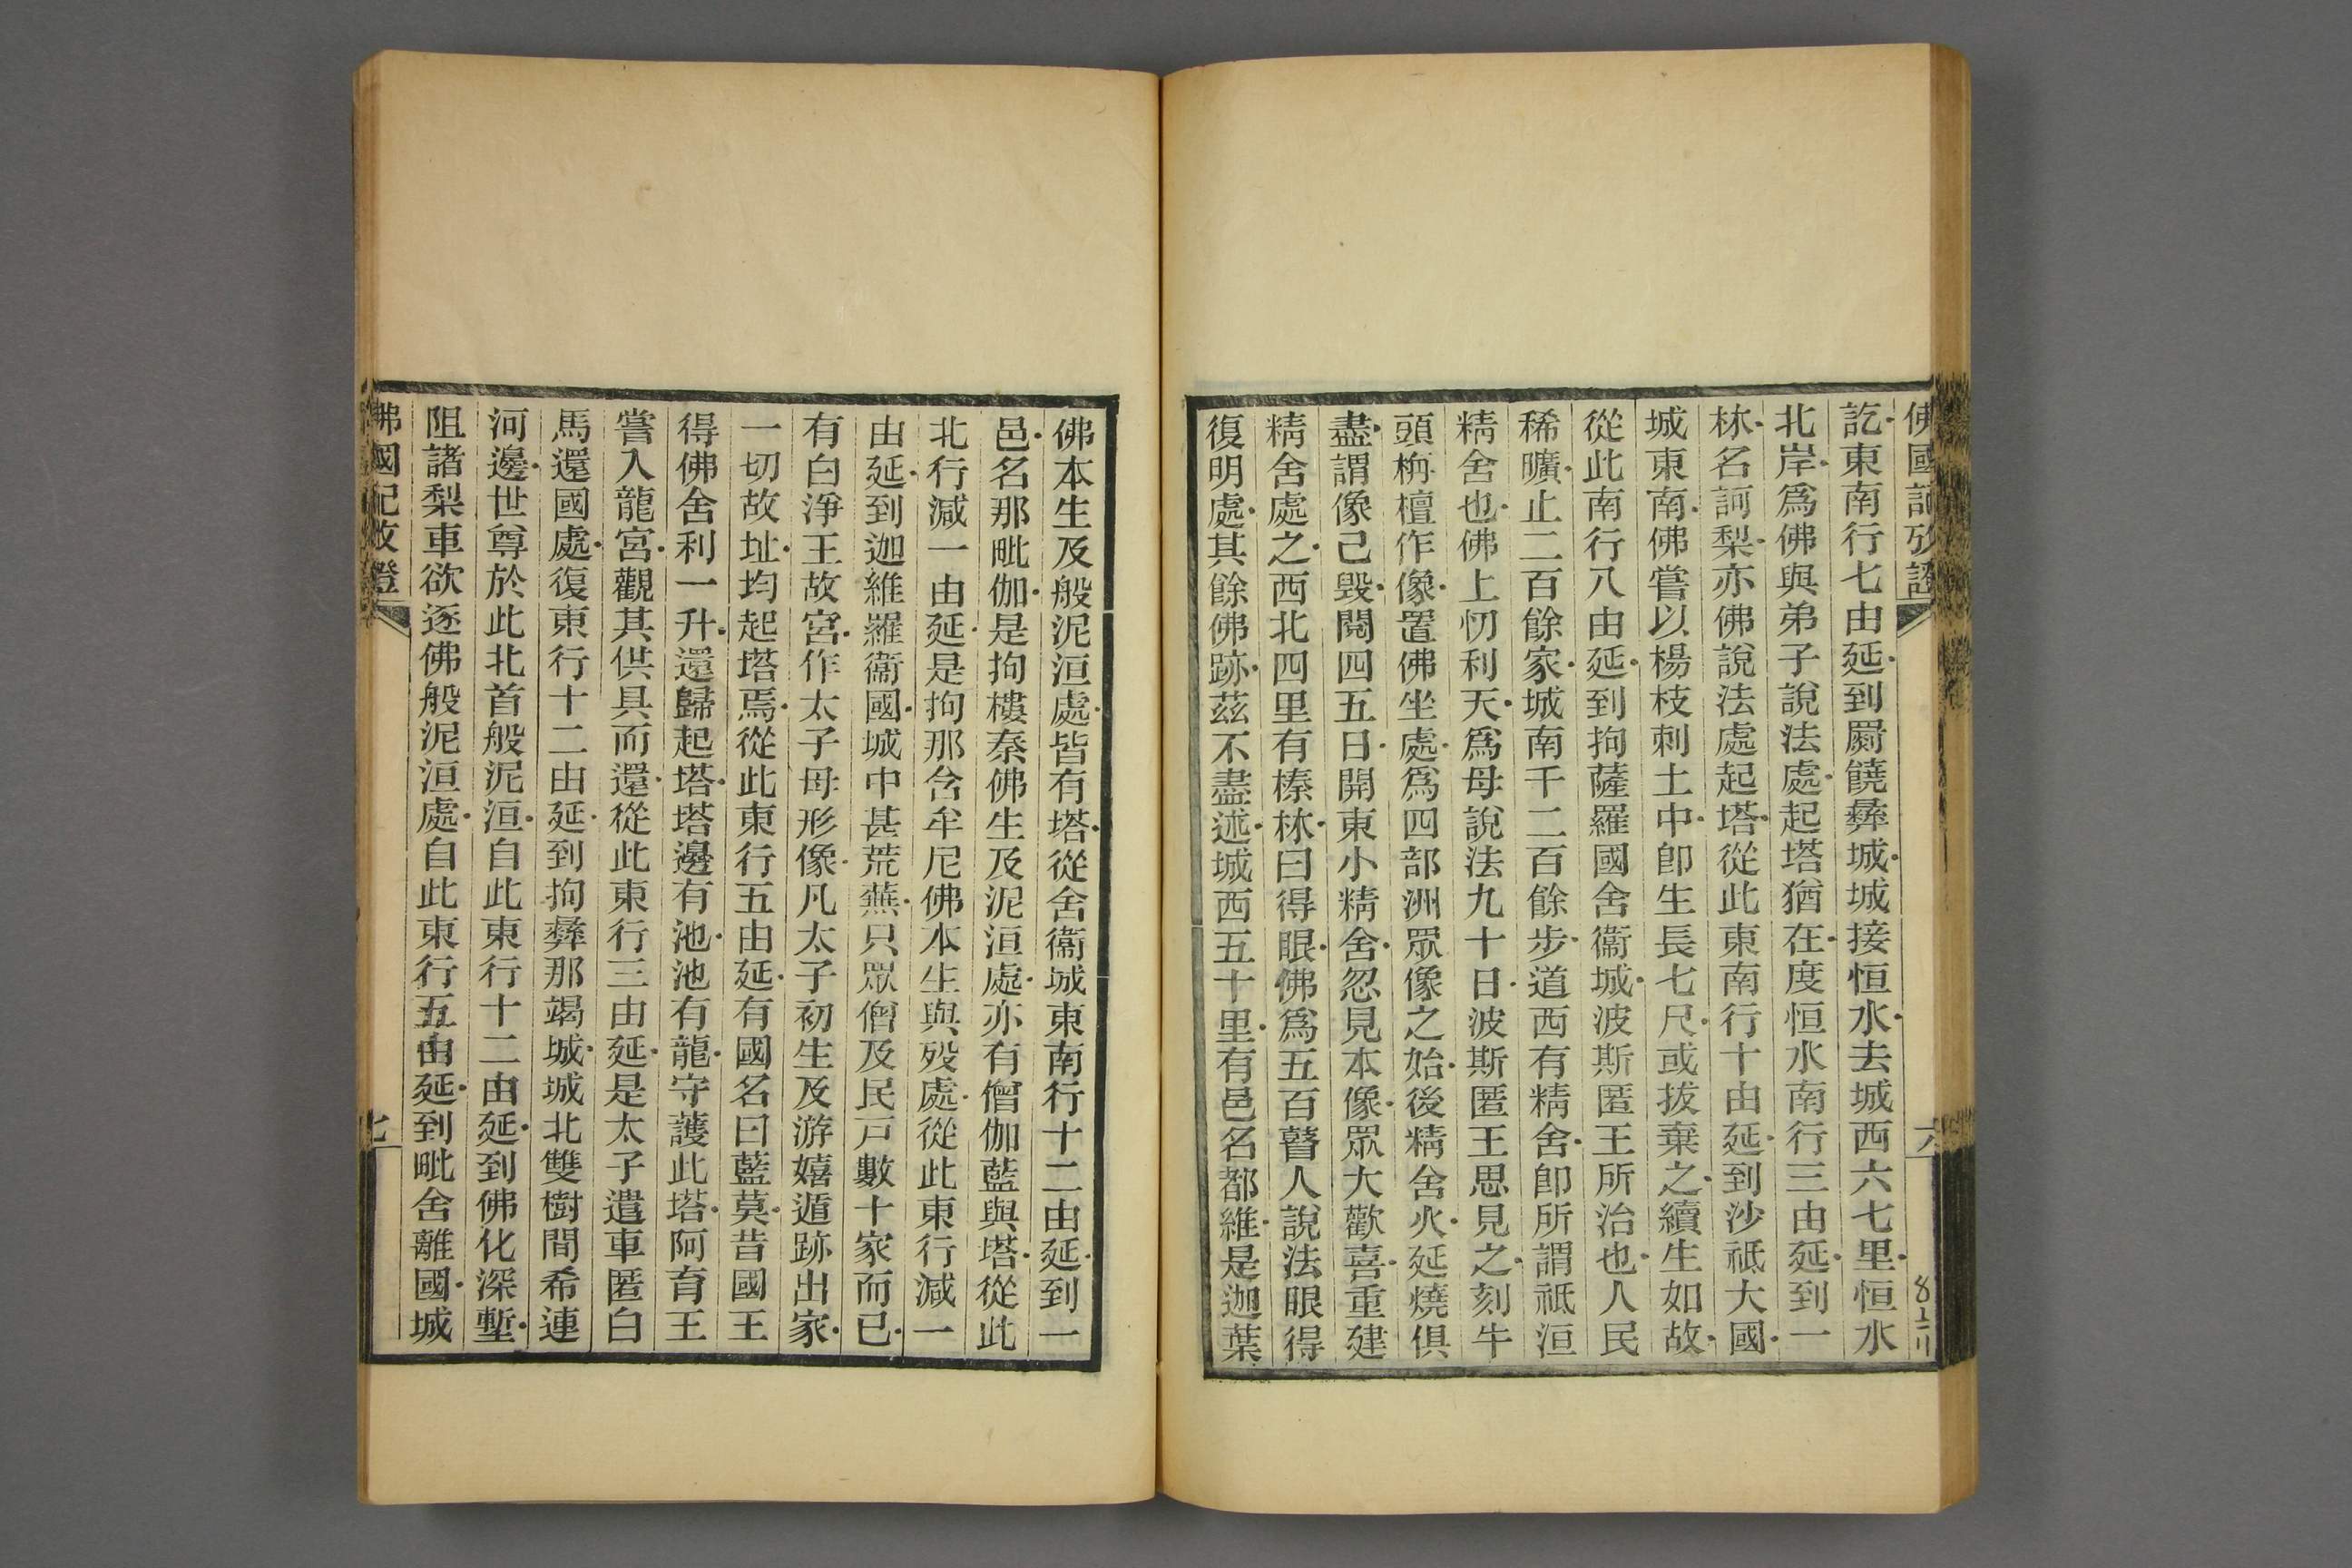 佛國記攷證
訖東南行七由延到罽饒彝城城接恒水去城西六七里恒水
北岸爲佛與弟子說法處起塔猶在度恒水南行三由延到一
林名訶梨亦佛說法處起塔從此東南行十由延到沙祇大國
城東南佛嘗以楊枝刺土中卽生長七尺或拔棄之續生如故
從此南行八由延到拘薩羅國舍衞城波斯匿王所治也人民
稀曠止二百餘家城南千二百餘步道西有精舍卽所謂祇洹
精舍也佛上忉利天爲母說法九十日波斯匿王思見之刻牛
頭栴檀作像置佛坐處爲四部洲眾像之始後精舍火延燒俱
盡謂像已毁閱四五日開東小精舍忽見本像眾大歡喜重建
精舍處之西北四里有榛林曰得眼佛爲五百瞽人說法眼得
復明處其餘佛跡茲不盡述城西五十里有邑名都維是迦葉
六
佛本生及般泥洹處皆有塔從舍衞城東南行十二由延到一
邑名那毗伽是拘樓秦佛生及泥洹處亦有僧伽藍與塔從此
北行減一由延是拘那含牟尼佛本生與歿處從此東行減一
由延到迦維羅衞國城中甚荒蕪只眾僧及民戸數十家而已
有白淨王故宮作太子母形像凡太子初生及游嬉遁跡出家
一切故址均起塔焉從此東行五由延有國名曰藍莫昔國王
得佛舍利一升還歸起塔塔邊有池池有龍守護此塔阿育王
嘗入龍宮觀其供具而還從此東行三由延是太子遣車匿白
馬還國處復東行十二由延到拘彝那竭城城北雙樹間希連
河邊世尊於此北首般泥洹自此東行十二由延到佛化深塹
阻諸梨車欲逐佛般泥洹處自此東行五由延到毗舍離國城
佛國記攷證
七